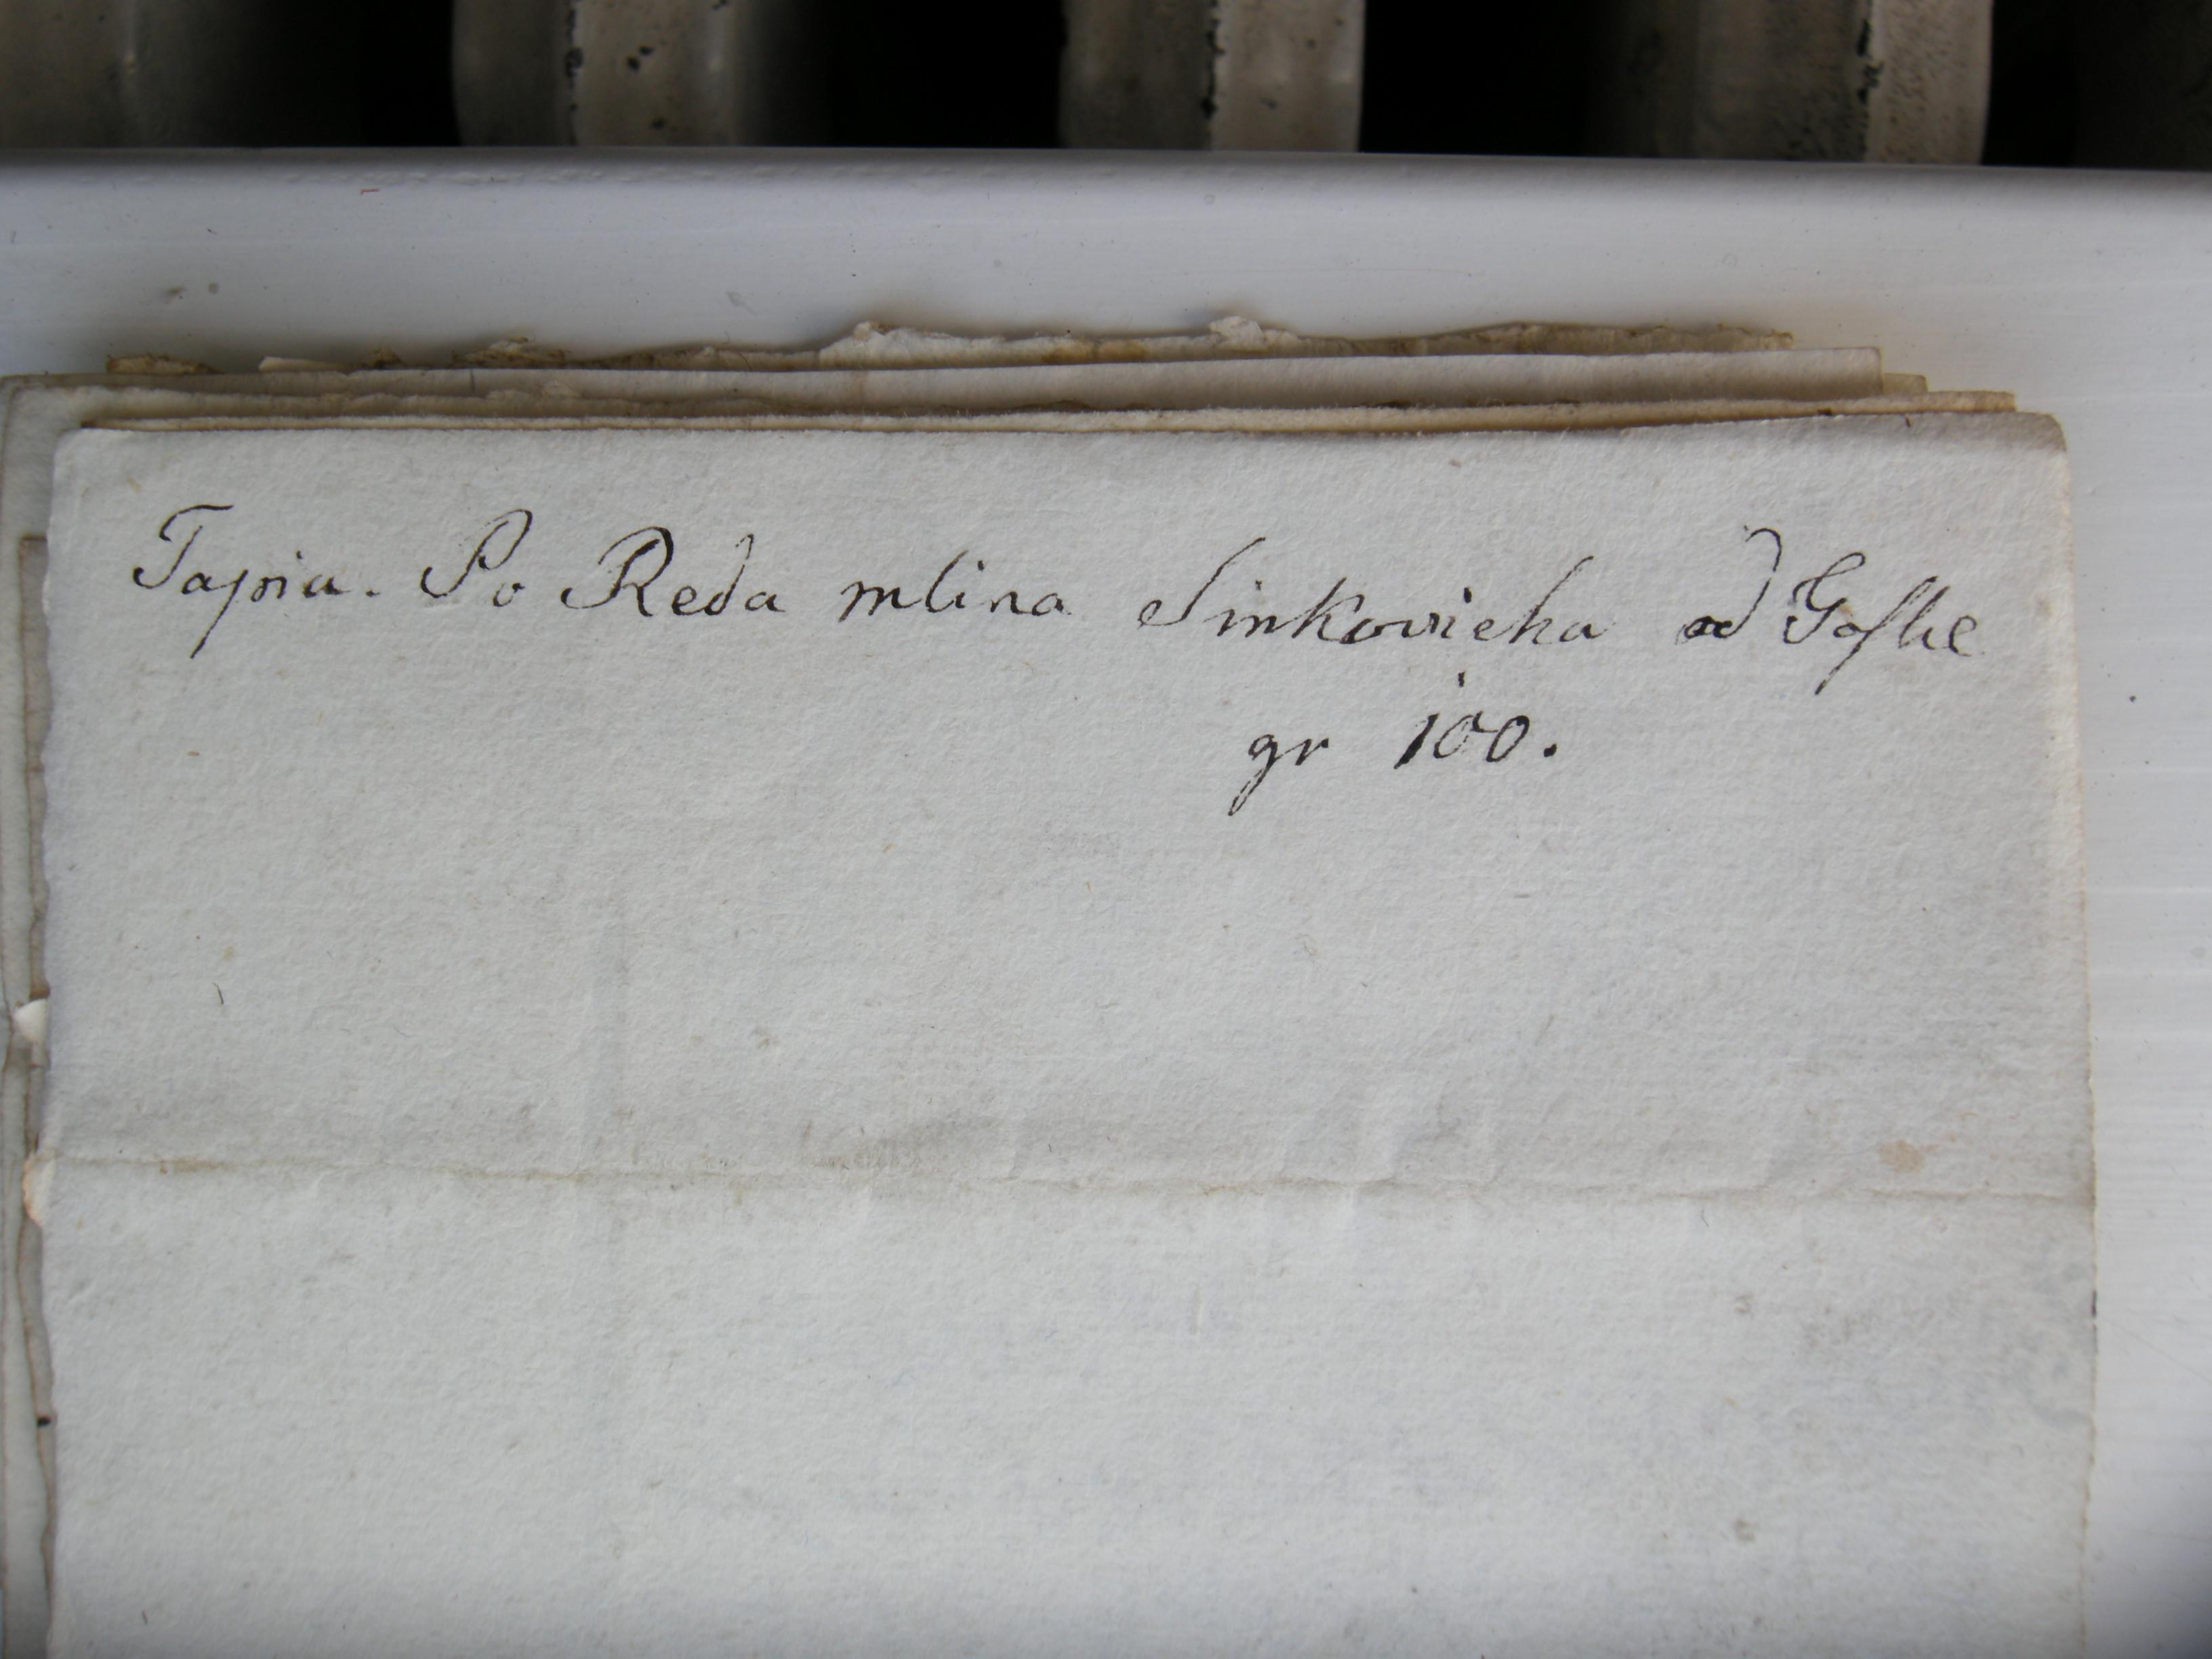 Tapia. Po Reda mlina Sinkovicha od Goske
gr 100.